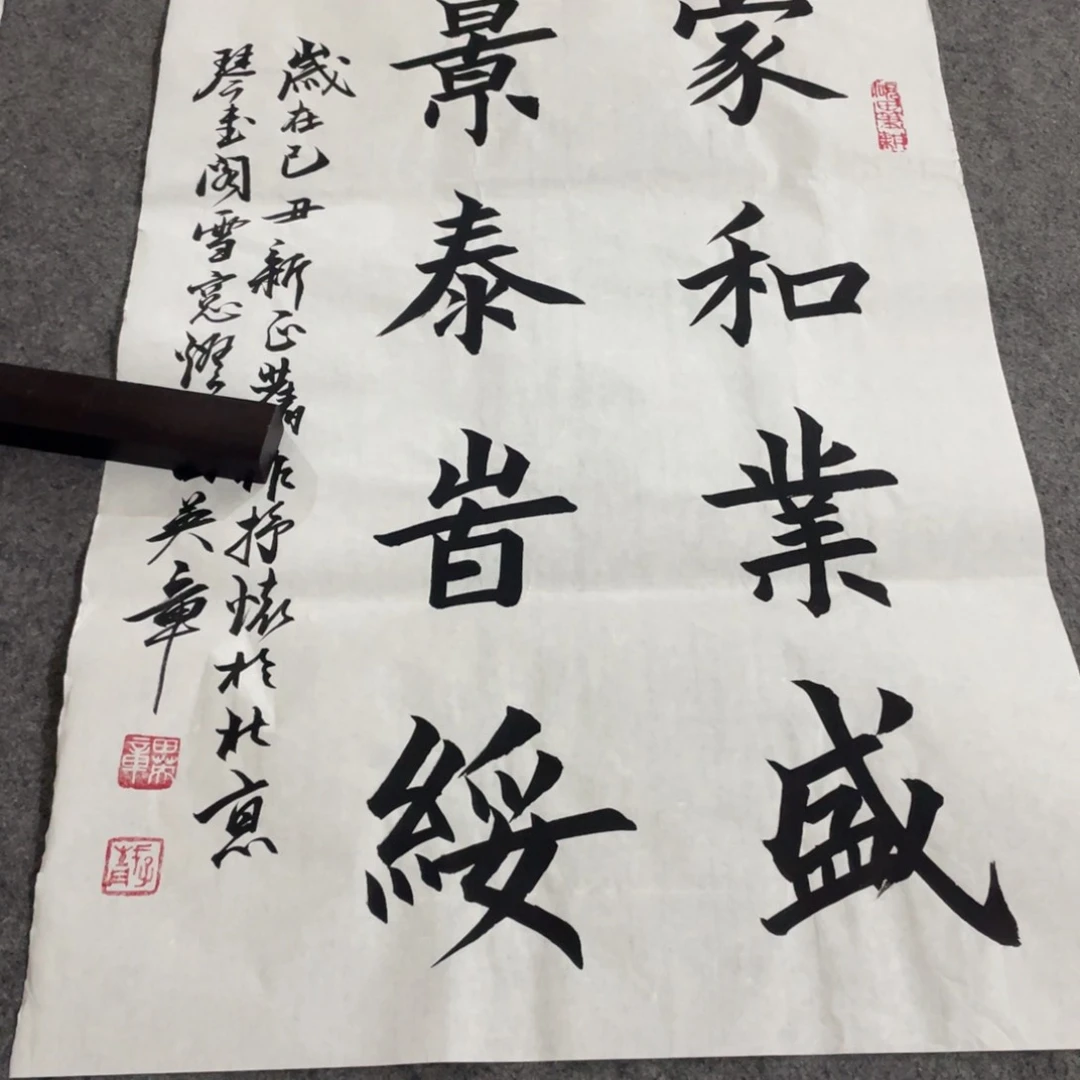 家和業盛
景泰旹綏
歲在己丑新正舊作抒懷於北京
琴書閣雪窓燈
英章